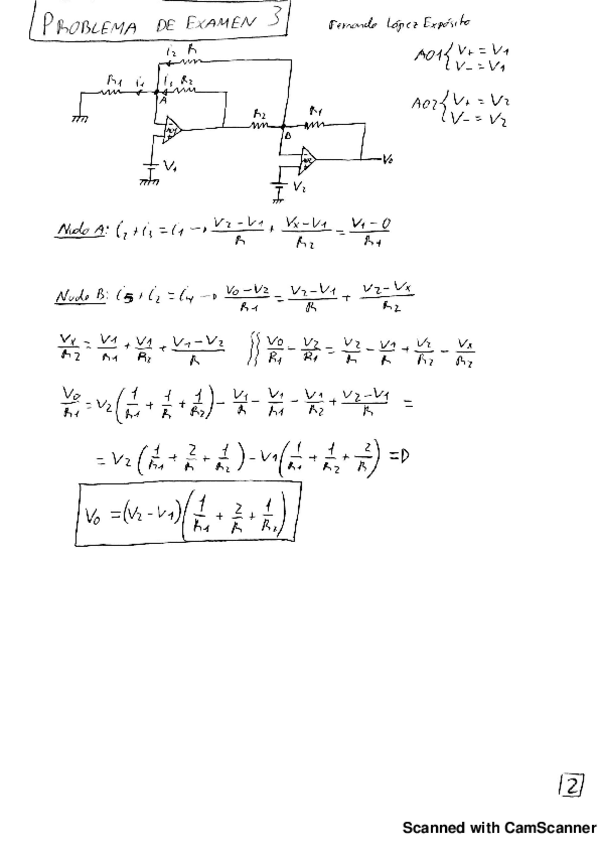 PROBLEMA DE EXAMEN 3
Fernando López Expósito
AO1 { V+ = V1
V- = V1
AO2 { V+ = V2
V- = V2
i2 R
R1 i1 i3 R2
A
R2 B R1
V1
V2
V0
Nudo A: i2 + i3 = i1 → (V2-V1)/R + (Vx-V1)/R2 = (V1-0)/R1
Nudo B: i5 + i2 = i4 → (V0-V2)/R1 = (V2-V1)/R + (V2-Vx)/R2
Vx/R2 = V1/R1 + V1/R2 + (V1-V2)/R ∫∫ V0/R1 - V2/R1 = V2/R - V1/R + V2/R2 - Vx/R2
V0/R1 = V2(1/R1 + 1/R + 1/R2) - V1/R - V1/R1 - V1/R2 + (V2-V1)/R =
= V2(1/R1 + 2/R + 1/R2) - V1(1/R1 + 1/R2 + 2/R) =D
V0 = (V2-V1)(1/R1 + 2/R + 1/R2)
2
Scanned with CamScanner